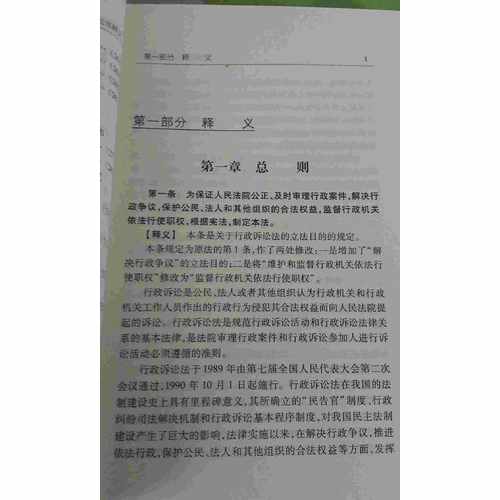 第一部分 释 义 1
第一部分 释 义
第一章 总 则
第一条 为保证人民法院公正、及时审理行政案件,解决行
政争议,保护公民、法人和其他组织的合法权益,监督行政机关
依法行使职权,根据宪法,制定本法。
【释义】 本条是关于行政诉讼法的立法目的的规定。
本条规定为原法的第1条,作了两处修改:一是增加了“解
决行政争议”的立法目的;二是将“维护和监督行政机关依法行
使职权”修改为“监督行政机关依法行使职权”。
行政诉讼是公民、法人或者其他组织认为行政机关和行政
机关工作人员作出的行政行为侵犯其合法权益而向人民法院提
起的诉讼。行政诉讼法是规范行政诉讼活动和行政诉讼法律关
系的基本法律,是法院审理行政案件和行政诉讼参加人进行诉
讼活动必须遵循的准则。
行政诉讼法于1989年由第七届全国人民代表大会第二次
会议通过,1990年10月1日起施行。行政诉讼法在我国的法
制建设史上具有里程碑意义,其所确立的“民告官”制度、行政
纠纷司法解决机制和行政诉讼基本程序制度,对我国民主法制
建设产生了巨大的影响,法律实施以来,在解决行政争议,推进
依法行政,保护公民、法人和其他组织的合法权益等方面,发挥